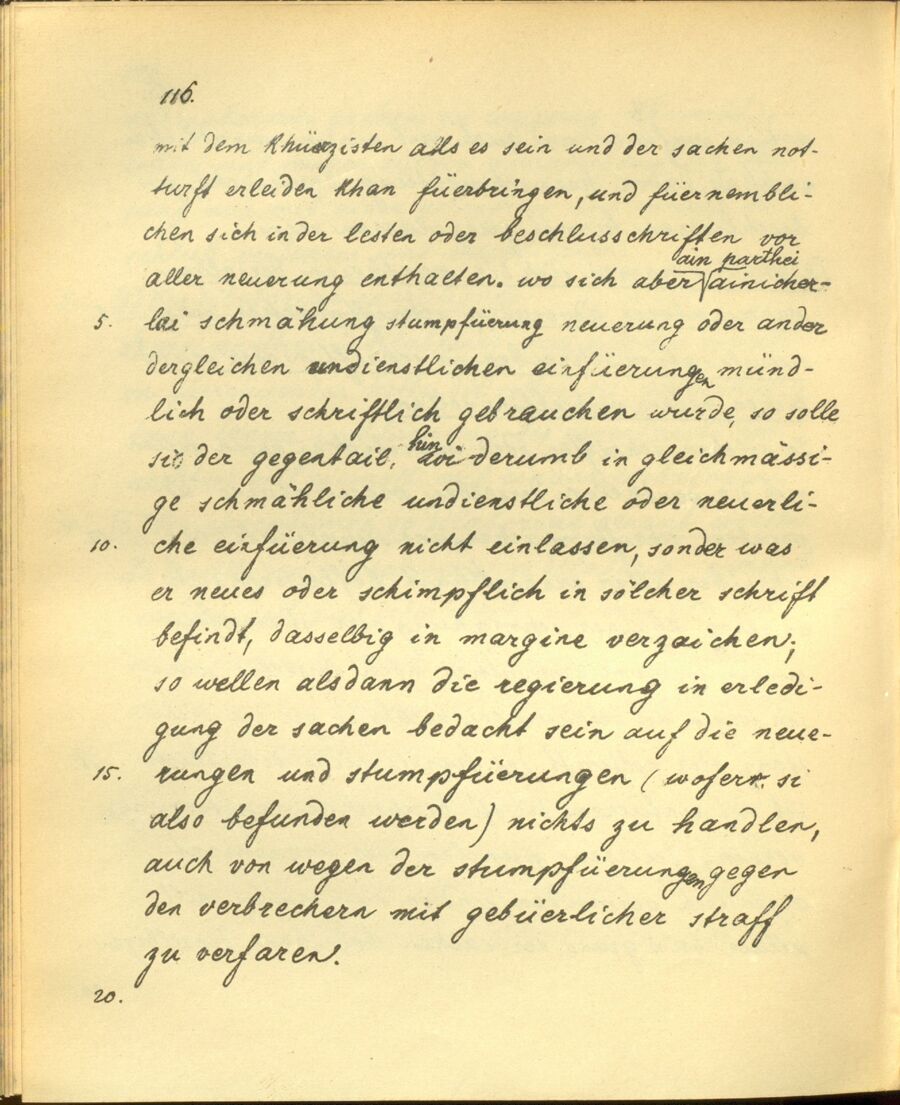 116.
mit dem khürzisten alls es sein und der sachen not-
turft erleiden khan füerbringen, und füernembli-
chen sich in der lesten oder beschlusschriften vor
ain parthei
aller neuerung enthalten. wo sich aber ainicher-
5. lai schmähung stumpfüerung neuerung oder ander
dergleichen undienstlichen einfüerungen münd-
lich oder schriftlich gebrauchen wurde, so solle
hin
sic der gegentail, widerumb in gleichmässi-
ge schmähliche undienstliche oder neuerli-
10. che einfüerung nicht einlassen, sonder was
er neues oder schimpflich in sölcher schrift
befindt, dasselbig in margine verzaichen;
so wellen alsdann die regierung in erledi-
gung der sachen bedacht sein auf die neue-
15. rungen und stumpfüerungen (wofern si
also befunden werden) nichts zu handlen,
auch von wegen der stumpfüerungen gegen
den verbrechern mit gebüerlicher straff
zu verfaren.
20.